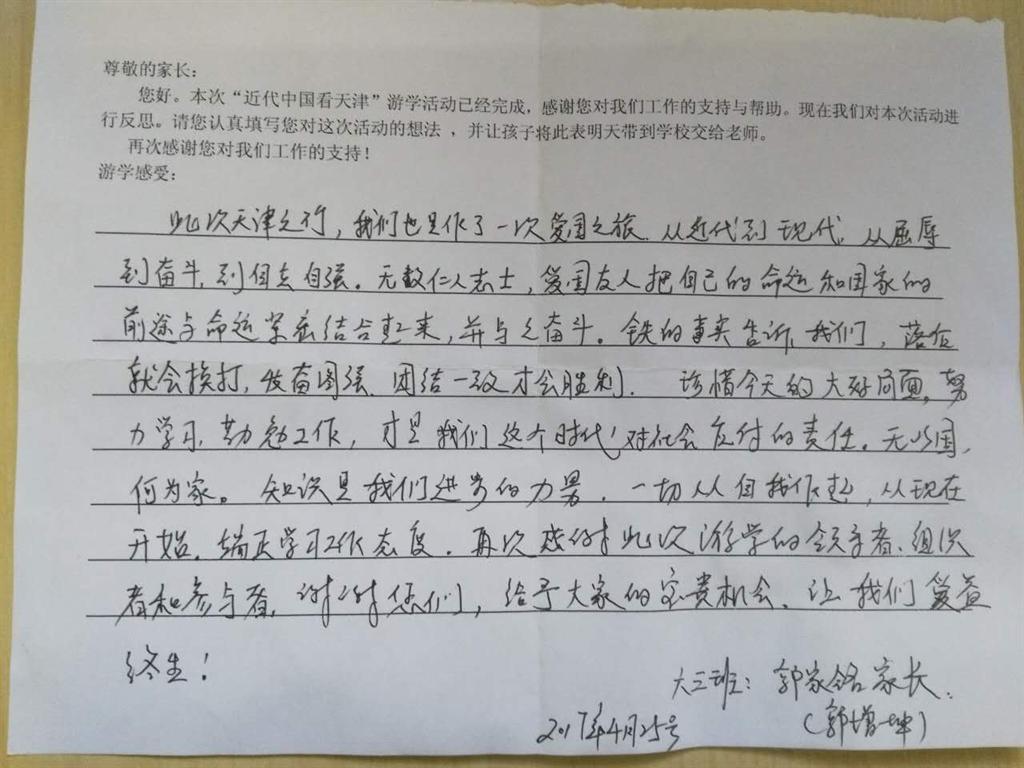 尊敬的家长：
您好。本次“近代中国看天津”游学活动已经完成，感谢您对我们工作的支持与帮助。现在我们对本次活动进
行反思。请您认真填写您对这次活动的想法 ，并让孩子将此表明天带到学校交给老师。
再次感谢您对我们工作的支持！
游学感受：
此次天津之行，我们也是作了一次爱国之旅.从近代到现代.从屈辱
到奋斗,到自立自强。无数仁人志士，爱国友人把自己的命运和国家的
前途与命运紧密结合起来,并与之奋斗。铁的事实告诉我们，落后
就会挨打,发奋图强.团结一致才会胜利. 珍惜今天的大好局面,努
力学习.勤勉工作，才是我们这个时代对社会应付的责任。无以国,
何为家。知识是我们进步的力量.一切从自我作起，从现在
开始.端正学习工作态度.再次感谢此次游学的领导者.组织
者和参与者,谢谢您们，给予大家的宝贵机会.让我们受益
终生！
大三班：郭家铭家长.
2017年4月25号 (郭增坤)